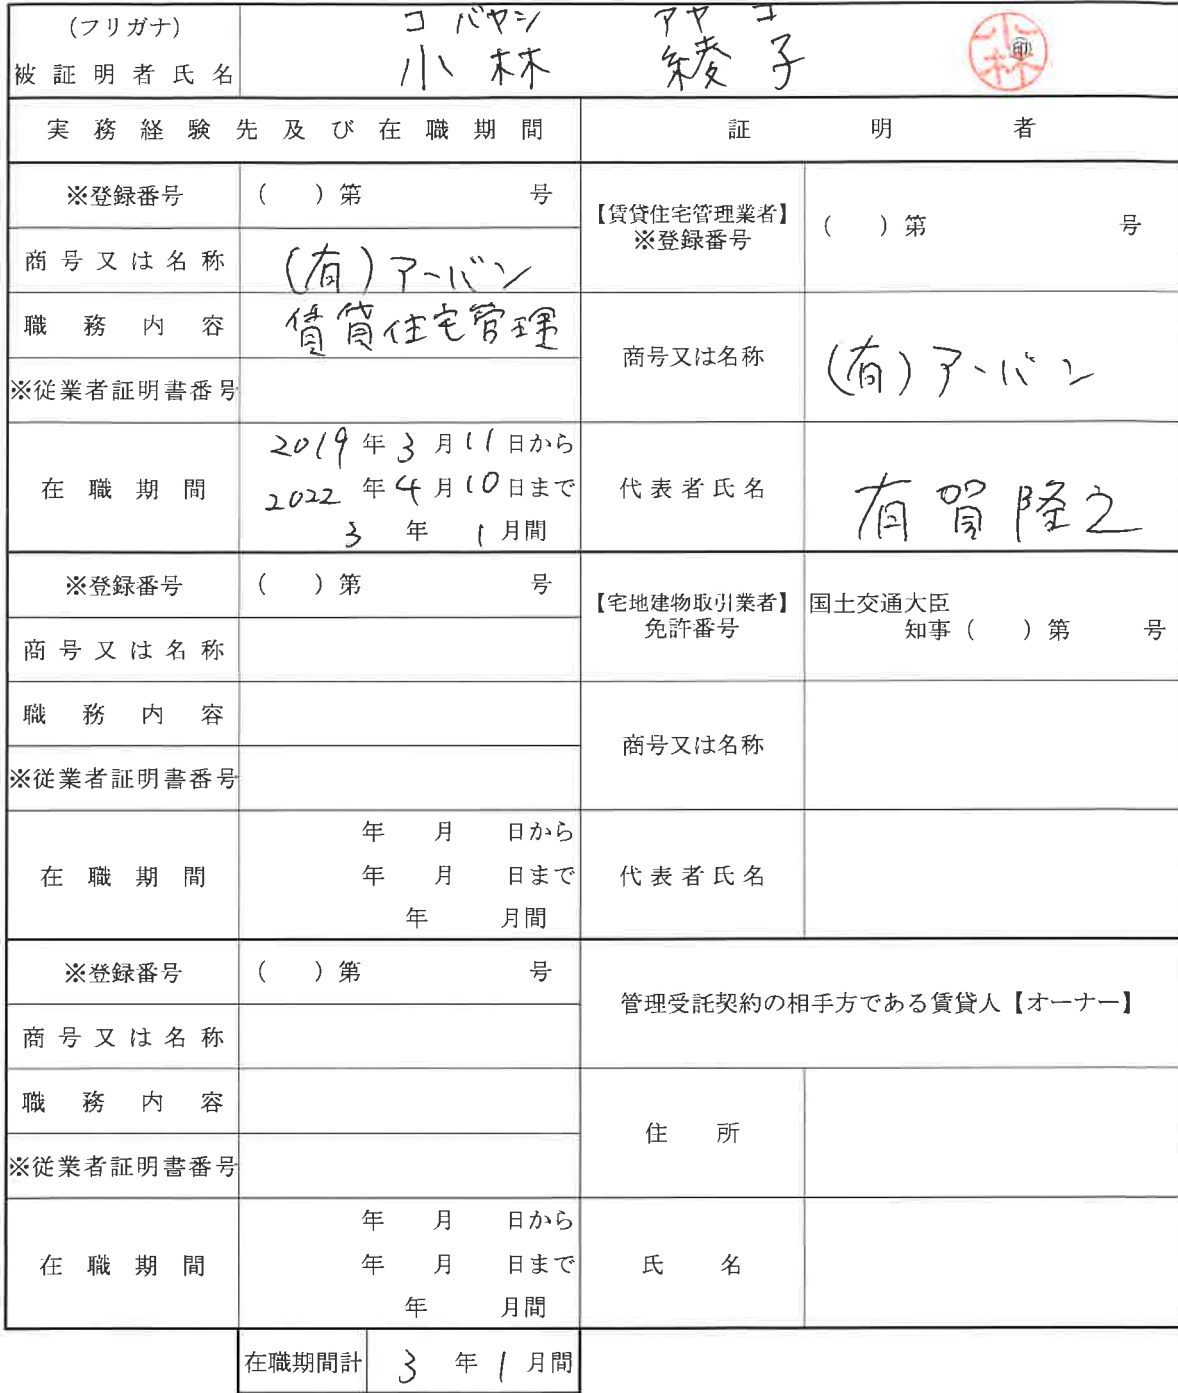 (フリガナ) コバヤシ アヤコ
被証明者氏名 小林 綾子 ㊞ 小林
実務経験先及び在職期間 証明者
※登録番号 ( )第 号
【賃貸住宅管理業者】
※登録番号 ( )第 号
商号又は名称 (有)アーバン
職務内容 賃貸住宅管理
商号又は名称 (有)アーバン
※従業者証明書番号
在職期間 2019年3月11日から
2022年4月10日まで
3年1月間
代表者氏名 有賀隆之
※登録番号 ( )第 号
【宅地建物取引業者】 国土交通大臣
免許番号 知事( )第 号
商号又は名称
職務内容
商号又は名称
※従業者証明書番号
在職期間 年 月 日から
年 月 日まで
年 月間
代表者氏名
※登録番号 ( )第 号
管理受託契約の相手方である賃貸人【オーナー】
商号又は名称
職務内容
住所
※従業者証明書番号
在職期間 年 月 日から
年 月 日まで
年 月間
氏名
在職期間計 3年1月間